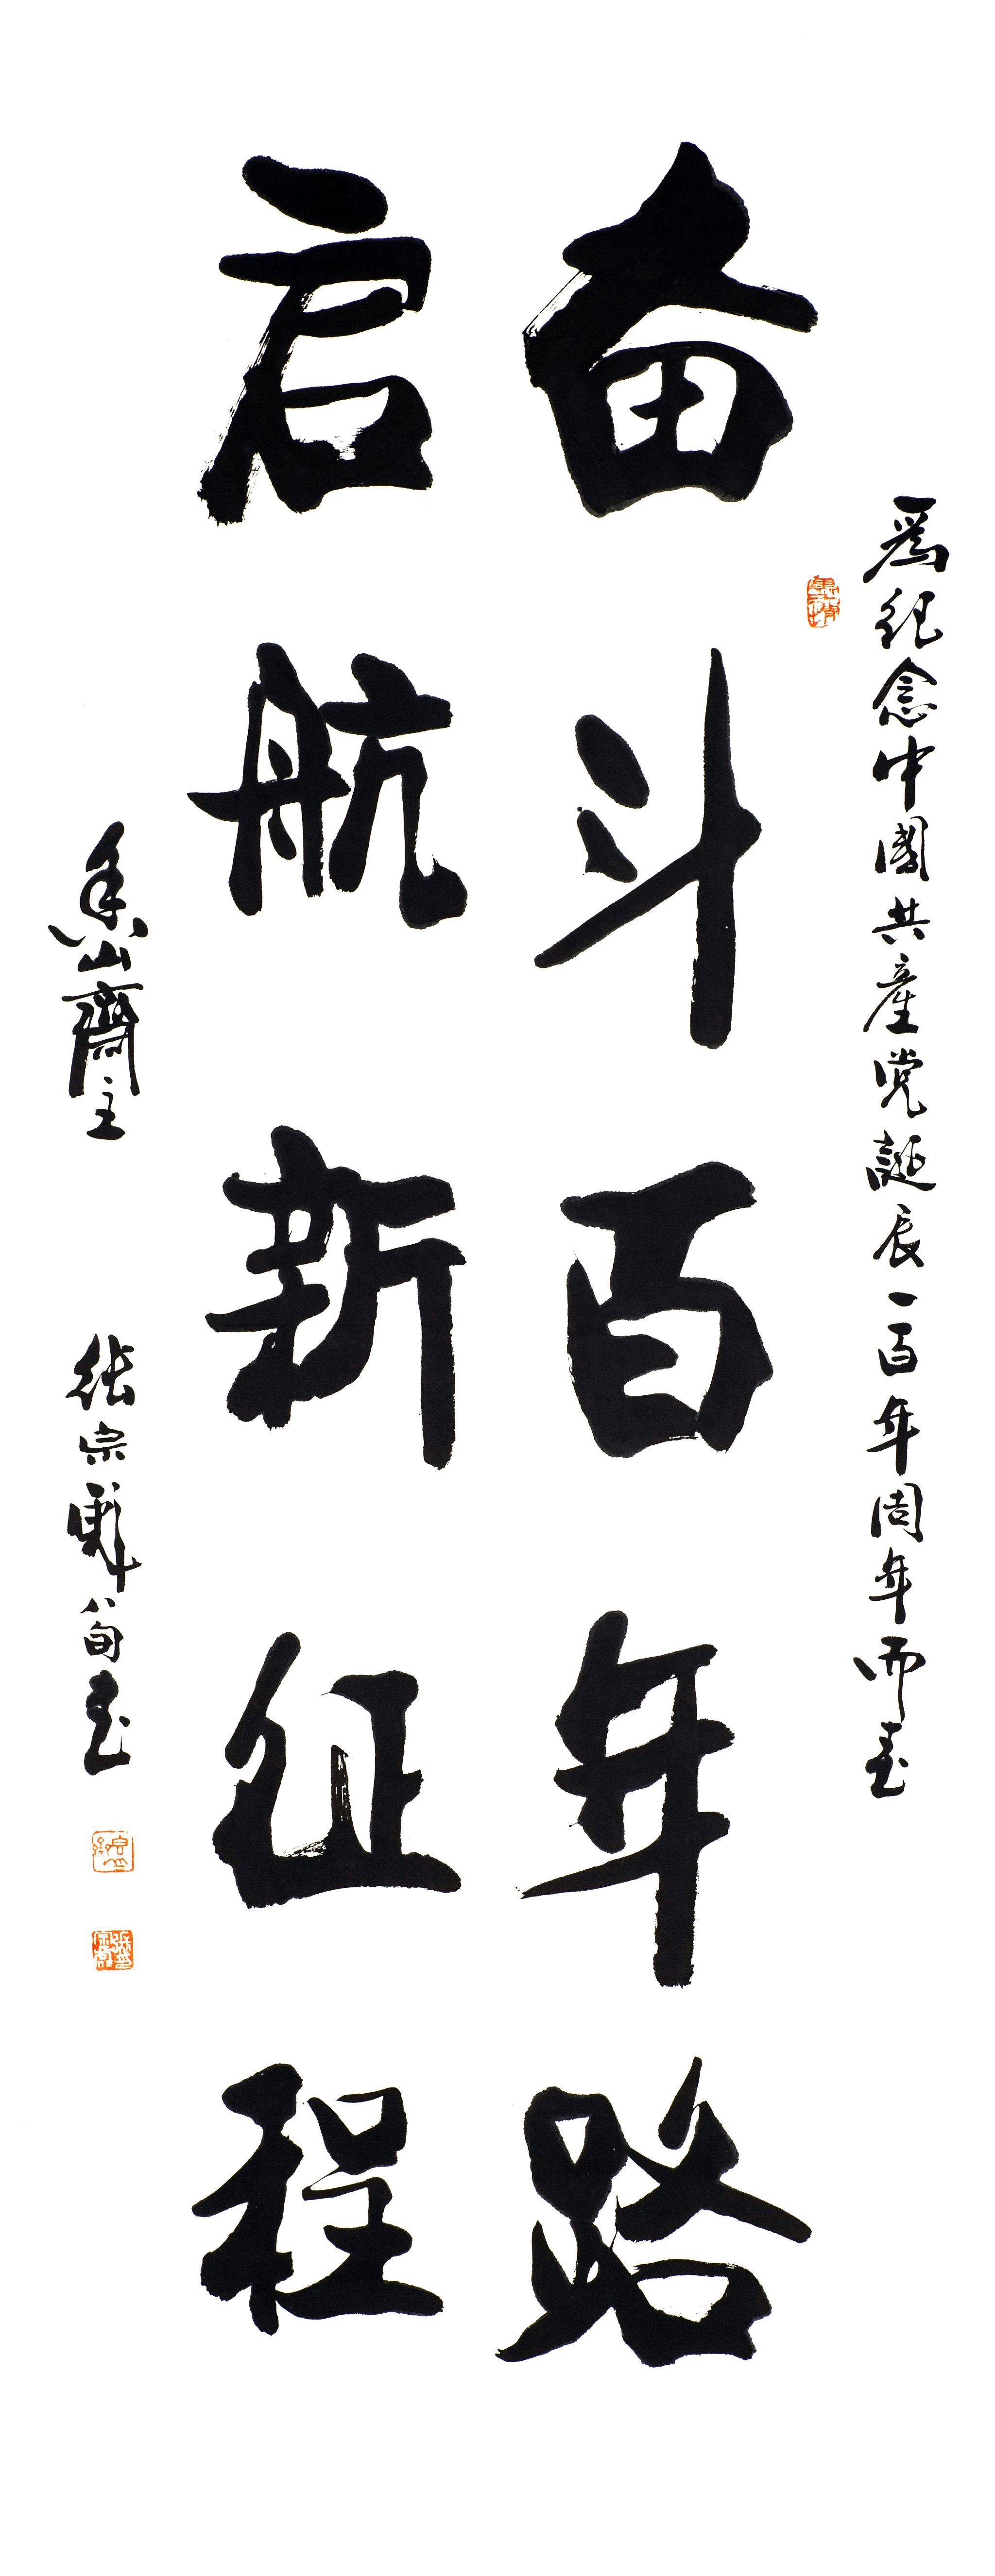 為纪念中國共產党誕辰一百年周年而書
奋斗百年路
启航新征程
香山齋主
张宗彝八旬書